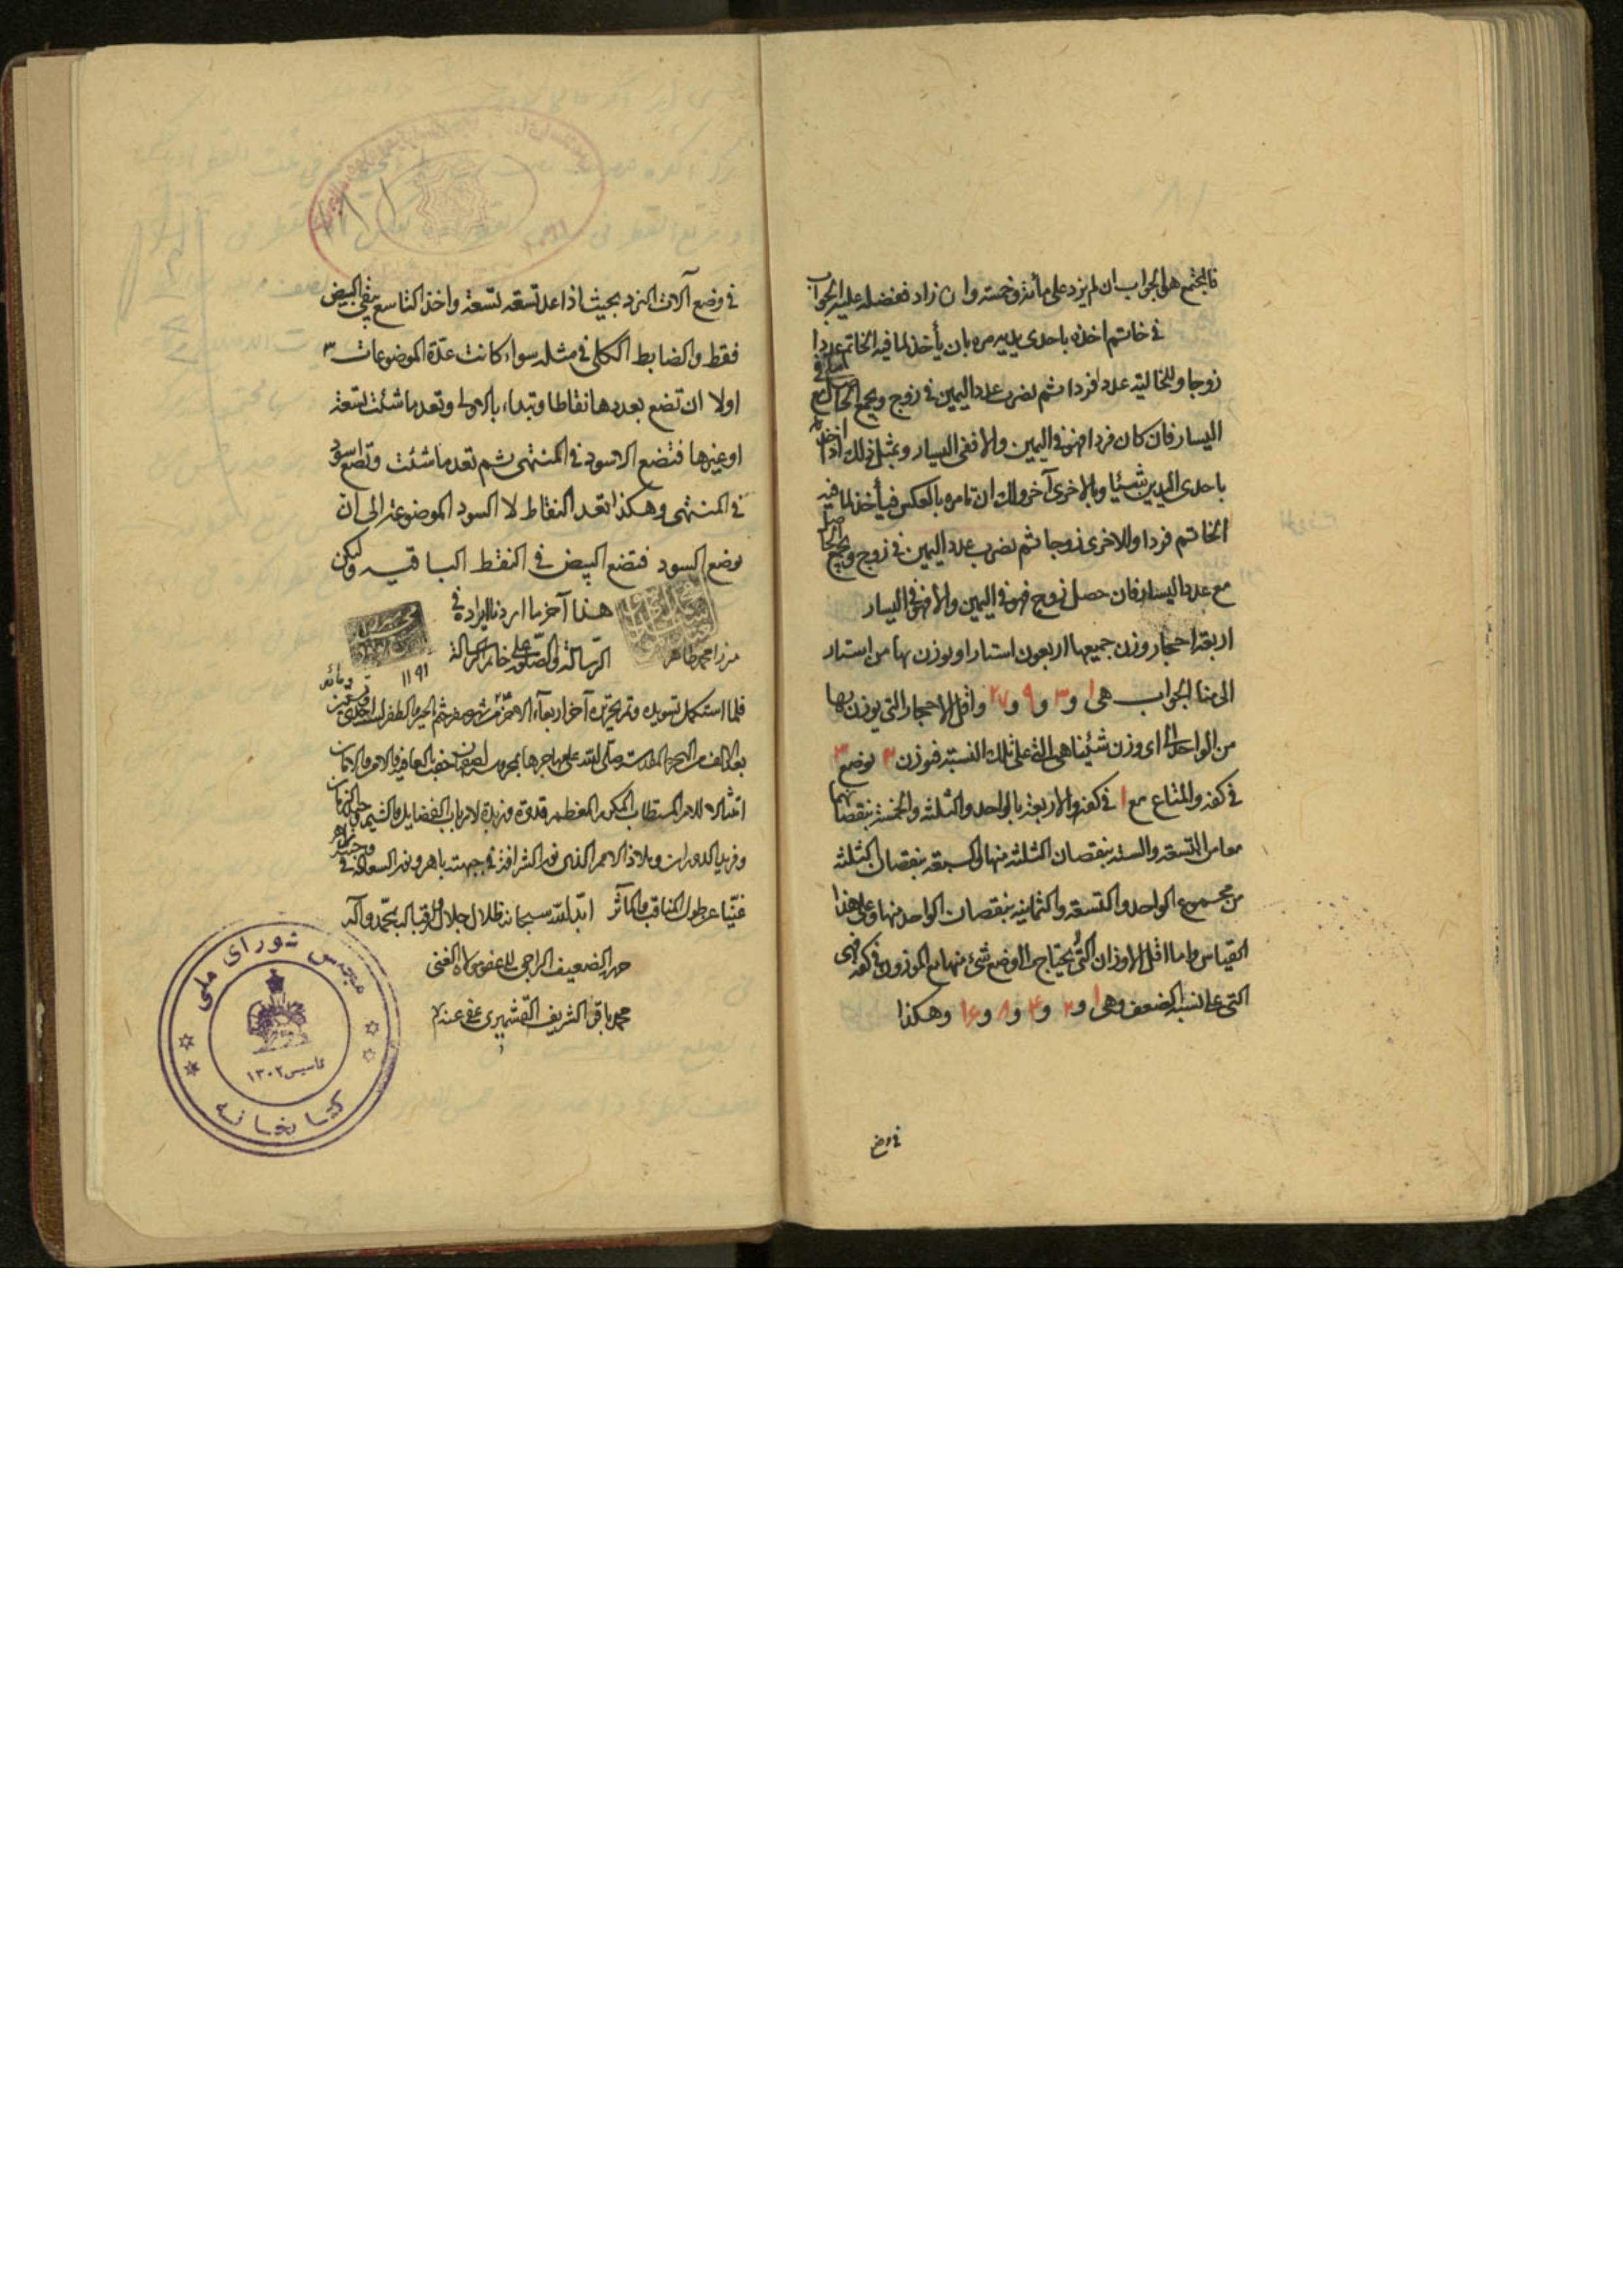 فالمجتمع هو الجواب ان لم يزد على مأة وخمسة وان زاد ففضله عليه الجواب
في خاتم اخذه باحدى يديه مره بان يأخذ لما فيه الخاتم عددا
زوجا وللخالية عددا فردا ثم يضرب عدد اليمين في زوج ويجمع الحاصل مع ما في
اليسار فان كان فردا فهو في اليمين والا ففي اليسار وبمثل ذلك اذا اخذ
باحدى اليدين شيئا وبالاخرى آخر ولك ان تامره بالعكس فيأخذ لما فيه
الخاتم فردا والاخرى زوجا ثم يضرب عدد اليمين في زوج ويجمع الحاصل
مع عدد اليسار فان حصل زوج فهو في اليمين والا فهو في اليسار
اربعة احجار وزن جميعها اربعون استارا ويوزن بها من استار
الى منا الجواب هى ١ و ٣ و ٩ و ٢٧ واقل الاحجار التي يوزن بها
من الواحد الى اى وزن شئنا هى التي على تلك النسبة فوزن ٢ يوضع ٣
في كفة والمتاع مع ١ في كفة والاربعة بالواحد والثلثة والخمسة بنقصانهما
معا من التسعة والستة بنقصان الثلثة منها والسبعة بنقصان الثلثة
من مجموع الواحد والتسعة والثمانية بنقصان الواحد منها وعلى هذا
القياس واما اقل الاوزان التي لا يحتاج الى وضع شئ منها مع الموزون في كفة فهى
التى على نسبة الضعف وهى ١ و ٢ و ۴ و ٨ و ١۶ وهكذا
في وضع
في وضع آلات النرد بحيث اذا عد تسعة تسعة واخذ التاسع يبقى البيض
فقط والضابط الكلى في مثله سواء كانت عدة الموضوعات ٣
اولا ان تضع بعددها نقاطا وتبداء بالاولى وتعد ما شئت تسعة
او غيرها فتضع الاسود في المنتهى ثم تعد ما شئت وتضع اسود
في المنتهى وهكذا تعد النقاط لا السود الموضوعة الى ان
يوضع السود فتضع البيض في النقط الباقيه وليكن
هذا آخر ما اردنا ايراده في
الرسالة والصلوة على خاتم الرسالة
ميرزا محمد طاهر
١١٩١
فلما استكمل تسويده وتم تحريره آخر اربعاء من شهر صفر ختم بالخير والظفر
امتثالا للامر المستطاب المكرم المعظم قدوة وزبدة لارباب الفضايل والشيم
وفريد الدوران وملاذ الامم الذى نور الشرافة في جبهته باهر ونور السعادة في
غنيا عن طول المناقب والمآثر ابد الله سبحانه ظلال جلاله واقباله بمحمد وآله
حرره الضعيف الراجى للعفو من الله الغنى
محمد باقر الشريف القمشهيرى عفى عنه
مجلس شورای ملی
تاسیس ۱۳۰۲
کتابخانه